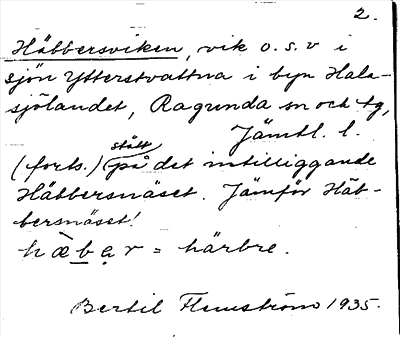 2.
Häbbersviken, vik o.s.v i
sjön Ytterstvattna i byn Hala-
sjölandet, Ragunda sn och tg,
Jämtl. l.
(forts.) stått på det intilliggande
Häbbersnäset. Jämför Häb-
bersnäset!
hæbər = härbre.
Bertil Flemström 1935.